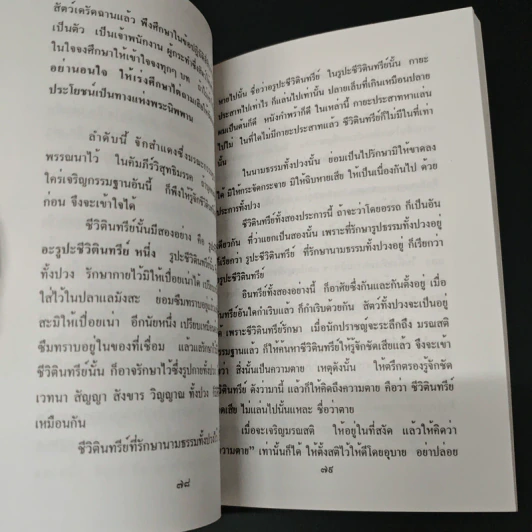 สัตว์เดรัจฉานแล้ว พึงศึกษาในข้อปฏิบัติ
เป็นตัว เป็นเจ้าพนักงาน ผู้กระทำซึ่ง
ในใจจงศึกษาให้เข้าใจจงทุกๆ บท
อย่านอนใจ ให้เร่งศึกษาไต่ถาม
ประโยชน์เป็นทางแห่งพระนิพพาน
ลำดับนี้ จักสำแดงซึ่งมรณะ
พรรณนาไว้ ในคัมภีร์วิสุทธิมรรค
ใคร่เจริญกรรมฐานอันนี้ ก็พึงให้รู้จักชีวิต
ก่อน จึงจะเข้าใจได้
ชีวิตินทรีย์นั้นมีสองอย่าง คือ
อะรูปะชีวิตินทรีย์ หนึ่ง รูปะชีวิตินทรีย์
ทั้งปวง รักษากายไว้มิให้เปื่อยเน่าได้
ใส่ไว้ในปลาแลมังสะ ย่อมซึมทราบอยู่
สะมิให้เปื่อยเน่า อีกนัยหนึ่ง เปรียบเหมือน
ซึมทราบอยู่ในของที่เชื่อม แลแล้วรักษา
ชีวิตินทรีย์นั้น ก็อาจรักษาไว้ซึ่งรูปกายทั้งปวง
เวทนา สัญญา สังขาร วิญญาณ ทั้งปวง
เหมือนกัน
ชีวิตินทรีย์ที่รักษานามธรรมทั้งปวง
๗๘
หายไปนั้น ชื่อว่าอรูปะชีวิตินทรีย์ ในรูปะชีวิตินทรีย์นั้น กายะ
ประสาทไปเท่าไร ก็แล่นไปเท่านั้น ปลายเล็บที่เกินเหมือนปลาย
ผมเป็นต้นก็ดี หนังกำพร้าก็ดี ในเหล่านี้ กายะประสาทหาแล่น
ไปไม่ ในที่ใดไม่มีกายะประสาทแล้ว ชีวิตินทรีย์ก็ไม่มีในที่เท่า
นั้น
ในนามธรรมทั้งปวงนั้น ย่อมเป็นไปรักษามิให้ขาดลง
ได้ มิให้กระจัดกระจาย มิให้ฉิบหายเสีย ให้เป็นเนื่องกันไป ด้วย
ประการทั้งปวง
ชีวิตินทรีย์ทั้งสองประการนี้ ถ้าจะว่าโดยอรรถ ก็เป็นอัน
เดียวกัน ที่ว่าแยกเป็นสองนั้น เพราะที่รักษารูปธรรมทั้งปวงอยู่
ก็เรียกว่า รูปะชีวิตินทรีย์ ที่รักษานามธรรมทั้งปวงอยู่ ก็เรียกว่า
อรูปะชีวิตินทรีย์
อินทรีย์ทั้งสองอย่างนี้ ก็อาศัยซึ่งกันและกันตั้งอยู่ เมื่อ
อินทรีย์อันใดกำเริบแล้ว ก็กำเริบด้วยกัน สัตว์ทั้งปวงจะเป็นอยู่
ได้ เพราะชีวิตินทรีย์รักษา เมื่อนักปราชญ์จะระลึกถึง มรณสติ
กรรมฐานแล้ว ก็ให้ค้นหาชีวิตินทรีย์ให้รู้จักชัดเสียแล้ว จึงจะเข้า
ใจว่า สิ่งนั้นเป็นความตาย เหตุดังนั้น ให้ตรึกตรองรู้จักชัด
ชีวิตินทรีย์ ดังว่ามานี้ แล้วก็ให้คิดถึงความตาย คือว่า ชีวิตินทรีย์
ขาดเสีย ไม่แล่นไปนั้นแหละ ชื่อว่าตาย
เมื่อจะเจริญมรณสติ ให้อยู่ในที่สงัด แล้วให้คิดว่า
“ความตาย” เท่านั้นก็ได้ ให้ตั้งสติไว้ให้ดีโดยอุบาย อย่าปล่อย
๗๙